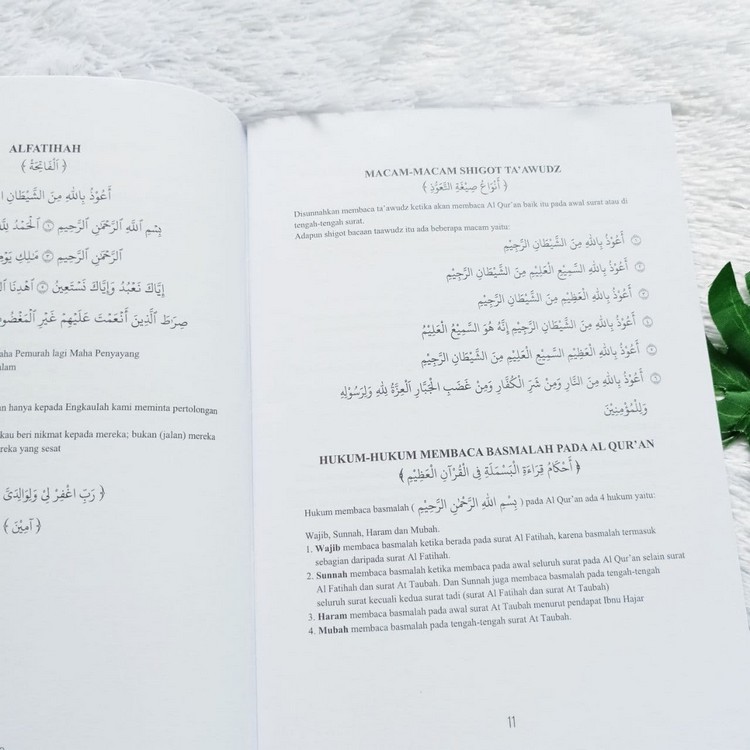 ALFATIHAH
﴿ اَلْفَاتِحَةُ ﴾
أَعُوْذُ بِاللهِ مِنَ الشَّيْطَانِ
بِسْمِ ٱللَّهِ ٱلرَّحْمَٰنِ ٱلرَّحِيمِ ۝١ ٱلْحَمْدُ لِلَّهِ
ٱلرَّحْمَٰنِ ٱلرَّحِيمِ ۝٣ مَٰلِكِ يَوْمِ
إِيَّاكَ نَعْبُدُ وَإِيَّاكَ نَسْتَعِينُ ۝٥ ٱهْدِنَا
صِرَٰطَ ٱلَّذِينَ أَنْعَمْتَ عَلَيْهِمْ غَيْرِ ٱلْمَغْضُوبِ
Pemurah lagi Maha Penyayang
hanya kepada Engkaulah kami meminta pertolongan
beri nikmat kepada mereka; bukan (jalan) mereka
yang sesat
﴿ رَبِّ اغْفِرْ لِيْ وَلِوَالِدَيَّ
﴿ آمِيْنَ ﴾
MACAM-MACAM SHIGOT TA'AWUDZ
﴿ أَنْوَاعُ صِيْغَةِ التَّعَوُّذِ ﴾
Disunnahkan membaca ta'awudz ketika akan membaca Al Qur'an baik itu pada awal surat atau di
tengah-tengah surat.
Adapun shigot bacaan taawudz itu ada beberapa macam yaitu:
١ أَعُوْذُ بِاللهِ مِنَ الشَّيْطَانِ الرَّجِيْمِ
٢ أَعُوْذُ بِاللهِ السَّمِيْعِ الْعَلِيْمِ مِنَ الشَّيْطَانِ الرَّجِيْمِ
٣ أَعُوْذُ بِاللهِ الْعَظِيْمِ مِنَ الشَّيْطَانِ الرَّجِيْمِ
٤ أَعُوْذُ بِاللهِ مِنَ الشَّيْطَانِ الرَّجِيْمِ إِنَّهُ هُوَ السَّمِيْعُ الْعَلِيْمُ
٥ أَعُوْذُ بِاللهِ الْعَظِيْمِ السَّمِيْعِ الْعَلِيْمِ مِنَ الشَّيْطَانِ الرَّجِيْمِ
٦ أَعُوْذُ بِاللهِ مِنَ النَّارِ وَمِنْ شَرِّ الْكُفَّارِ وَمِنْ غَضَبِ الْجَبَّارِ اَلْعِزَّةُ لِلّٰهِ وَلِرَسُوْلِهِ
وَلِلْمُؤْمِنِيْنَ
HUKUM-HUKUM MEMBACA BASMALAH PADA AL QUR'AN
﴿ أَحْكَامُ قِرَاءَةِ الْبَسْمَلَةِ فِي الْقُرْآنِ الْعَظِيْمِ ﴾
Hukum membaca basmalah ( بِسْمِ اللهِ الرَّحْمٰنِ الرَّحِيْمِ ) pada Al Qur'an ada 4 hukum yaitu:
Wajib, Sunnah, Haram dan Mubah.
1. Wajib membaca basmalah ketika berada pada surat Al Fatihah, karena basmalah termasuk
sebagian daripada surat Al Fatihah.
2. Sunnah membaca basmalah ketika membaca pada awal seluruh surat pada Al Qur'an selain surat
Al Fatihah dan surat At Taubah. Dan Sunnah juga membaca basmalah pada tengah-tengah
seluruh surat kecuali kedua surat tadi (surat Al Fatihah dan surat At Taubah)
3. Haram membaca basmalah pada awal surat At Taubah menurut pendapat Ibnu Hajar
4. Mubah membaca basmalah pada tengah-tengah surat At Taubah.
11